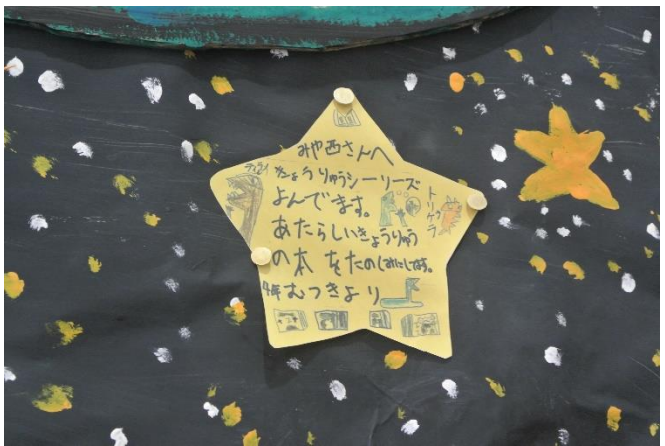 みや西さんへ
きょうりゅうシーリーズ
よんでます。
あたらしいきょうりゅう
の本をたのしみにしてます。
4年むつきより
トリケラ